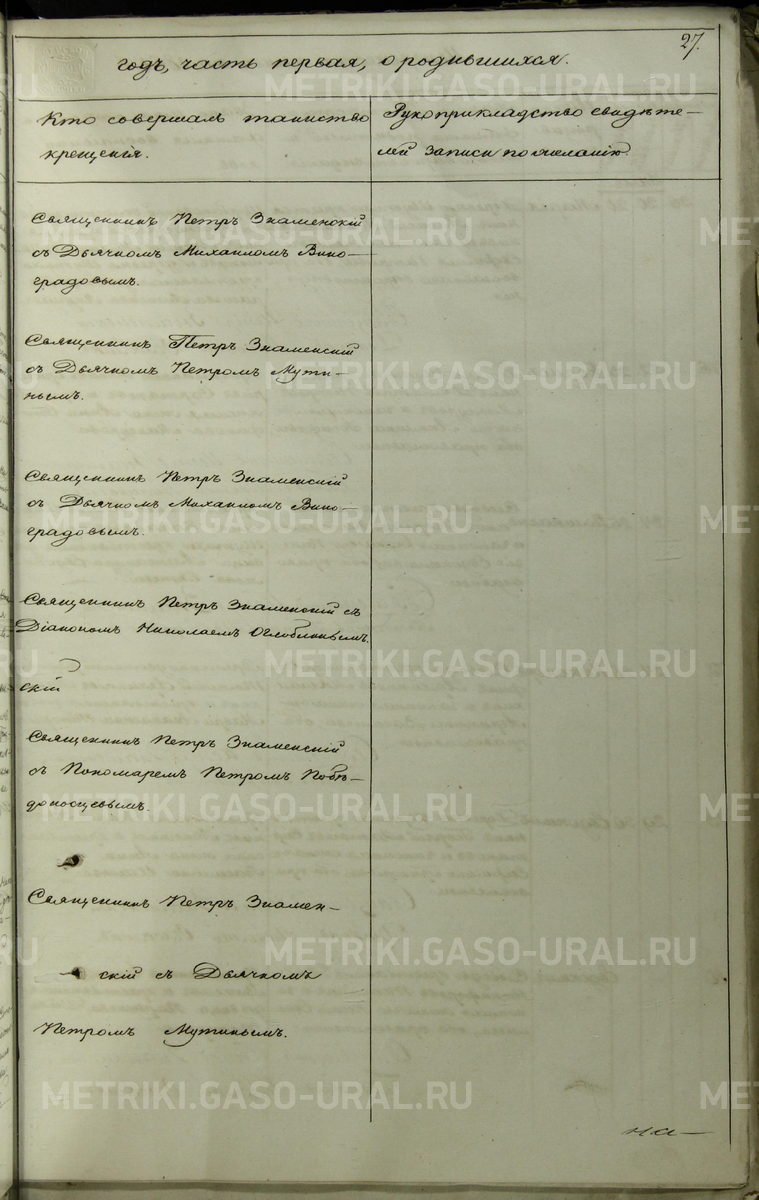 27.
годъ, часть первая, о родившихся.
Кто совершалъ таинство
крещенія.
Рукоприкладство свидѣте–
лей записи по желанію
Священникъ Петръ Знаменскій
съ Дьячкомъ Михаиломъ Вино–
градовымъ.
Священникъ Петръ Знаменскій
съ Дьячкомъ Петромъ Мути–
нымъ.
Священникъ Петръ Знаменскій
съ Дьячкомъ Михаиломъ Вино–
градовымъ.
Священникъ Петръ Знаменскій съ
Діакономъ Николаемъ Оглоблинымъ.
скій
Священникъ Петръ Знаменскій
съ Пономаремъ Петромъ Побѣ–
доносцевымъ.
Священникъ Петръ Знамен–
скій съ Дьячкомъ
Петромъ Мутинымъ.
METRIKI.GASO-URAL.RU